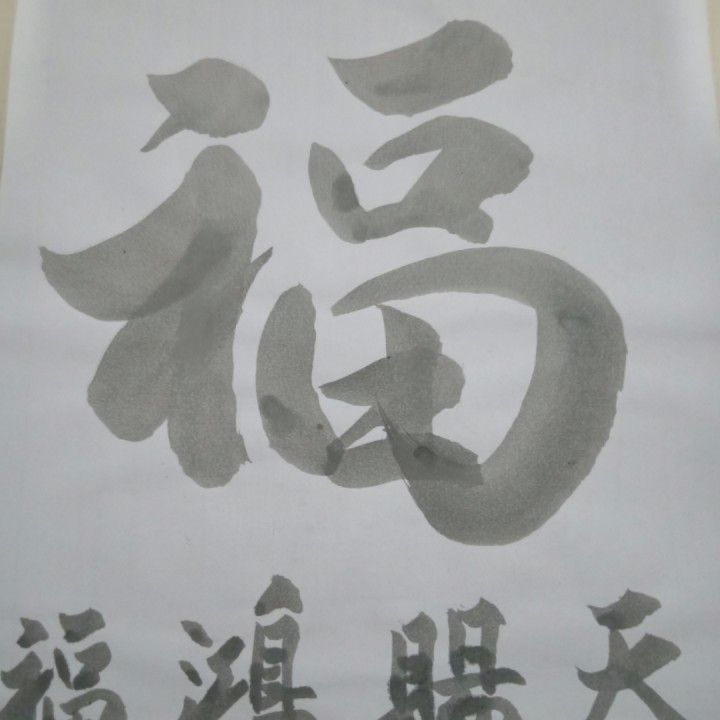 福
天賜鴻福